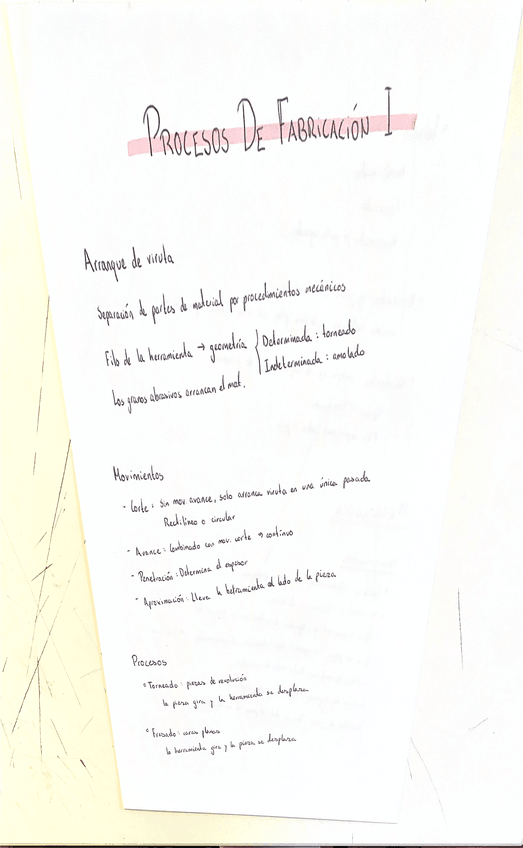 PROCESOS DE FABRICACIÓN I
Arranque de viruta
Separación de partes de material por procedimientos mecánicos
Filo de la herramienta → geometría { Determinada : torneado
Indeterminada : amolado
Los granos abrasivos arrancan el mat.
Movimientos
- Corte : Sin mov. avance, solo arranca viruta en una única pasada
Rectilíneo o circular
- Avance : Combinado con mov. corte → contínuo
- Penetración : Determina el espesor
- Aproximación : Lleva la herramienta al lado de la pieza
Procesos
° Torneado : piezas de revolución
la pieza gira y la herramienta se desplaza
° Fresado : caras planas
la herramienta gira y la pieza se desplaza